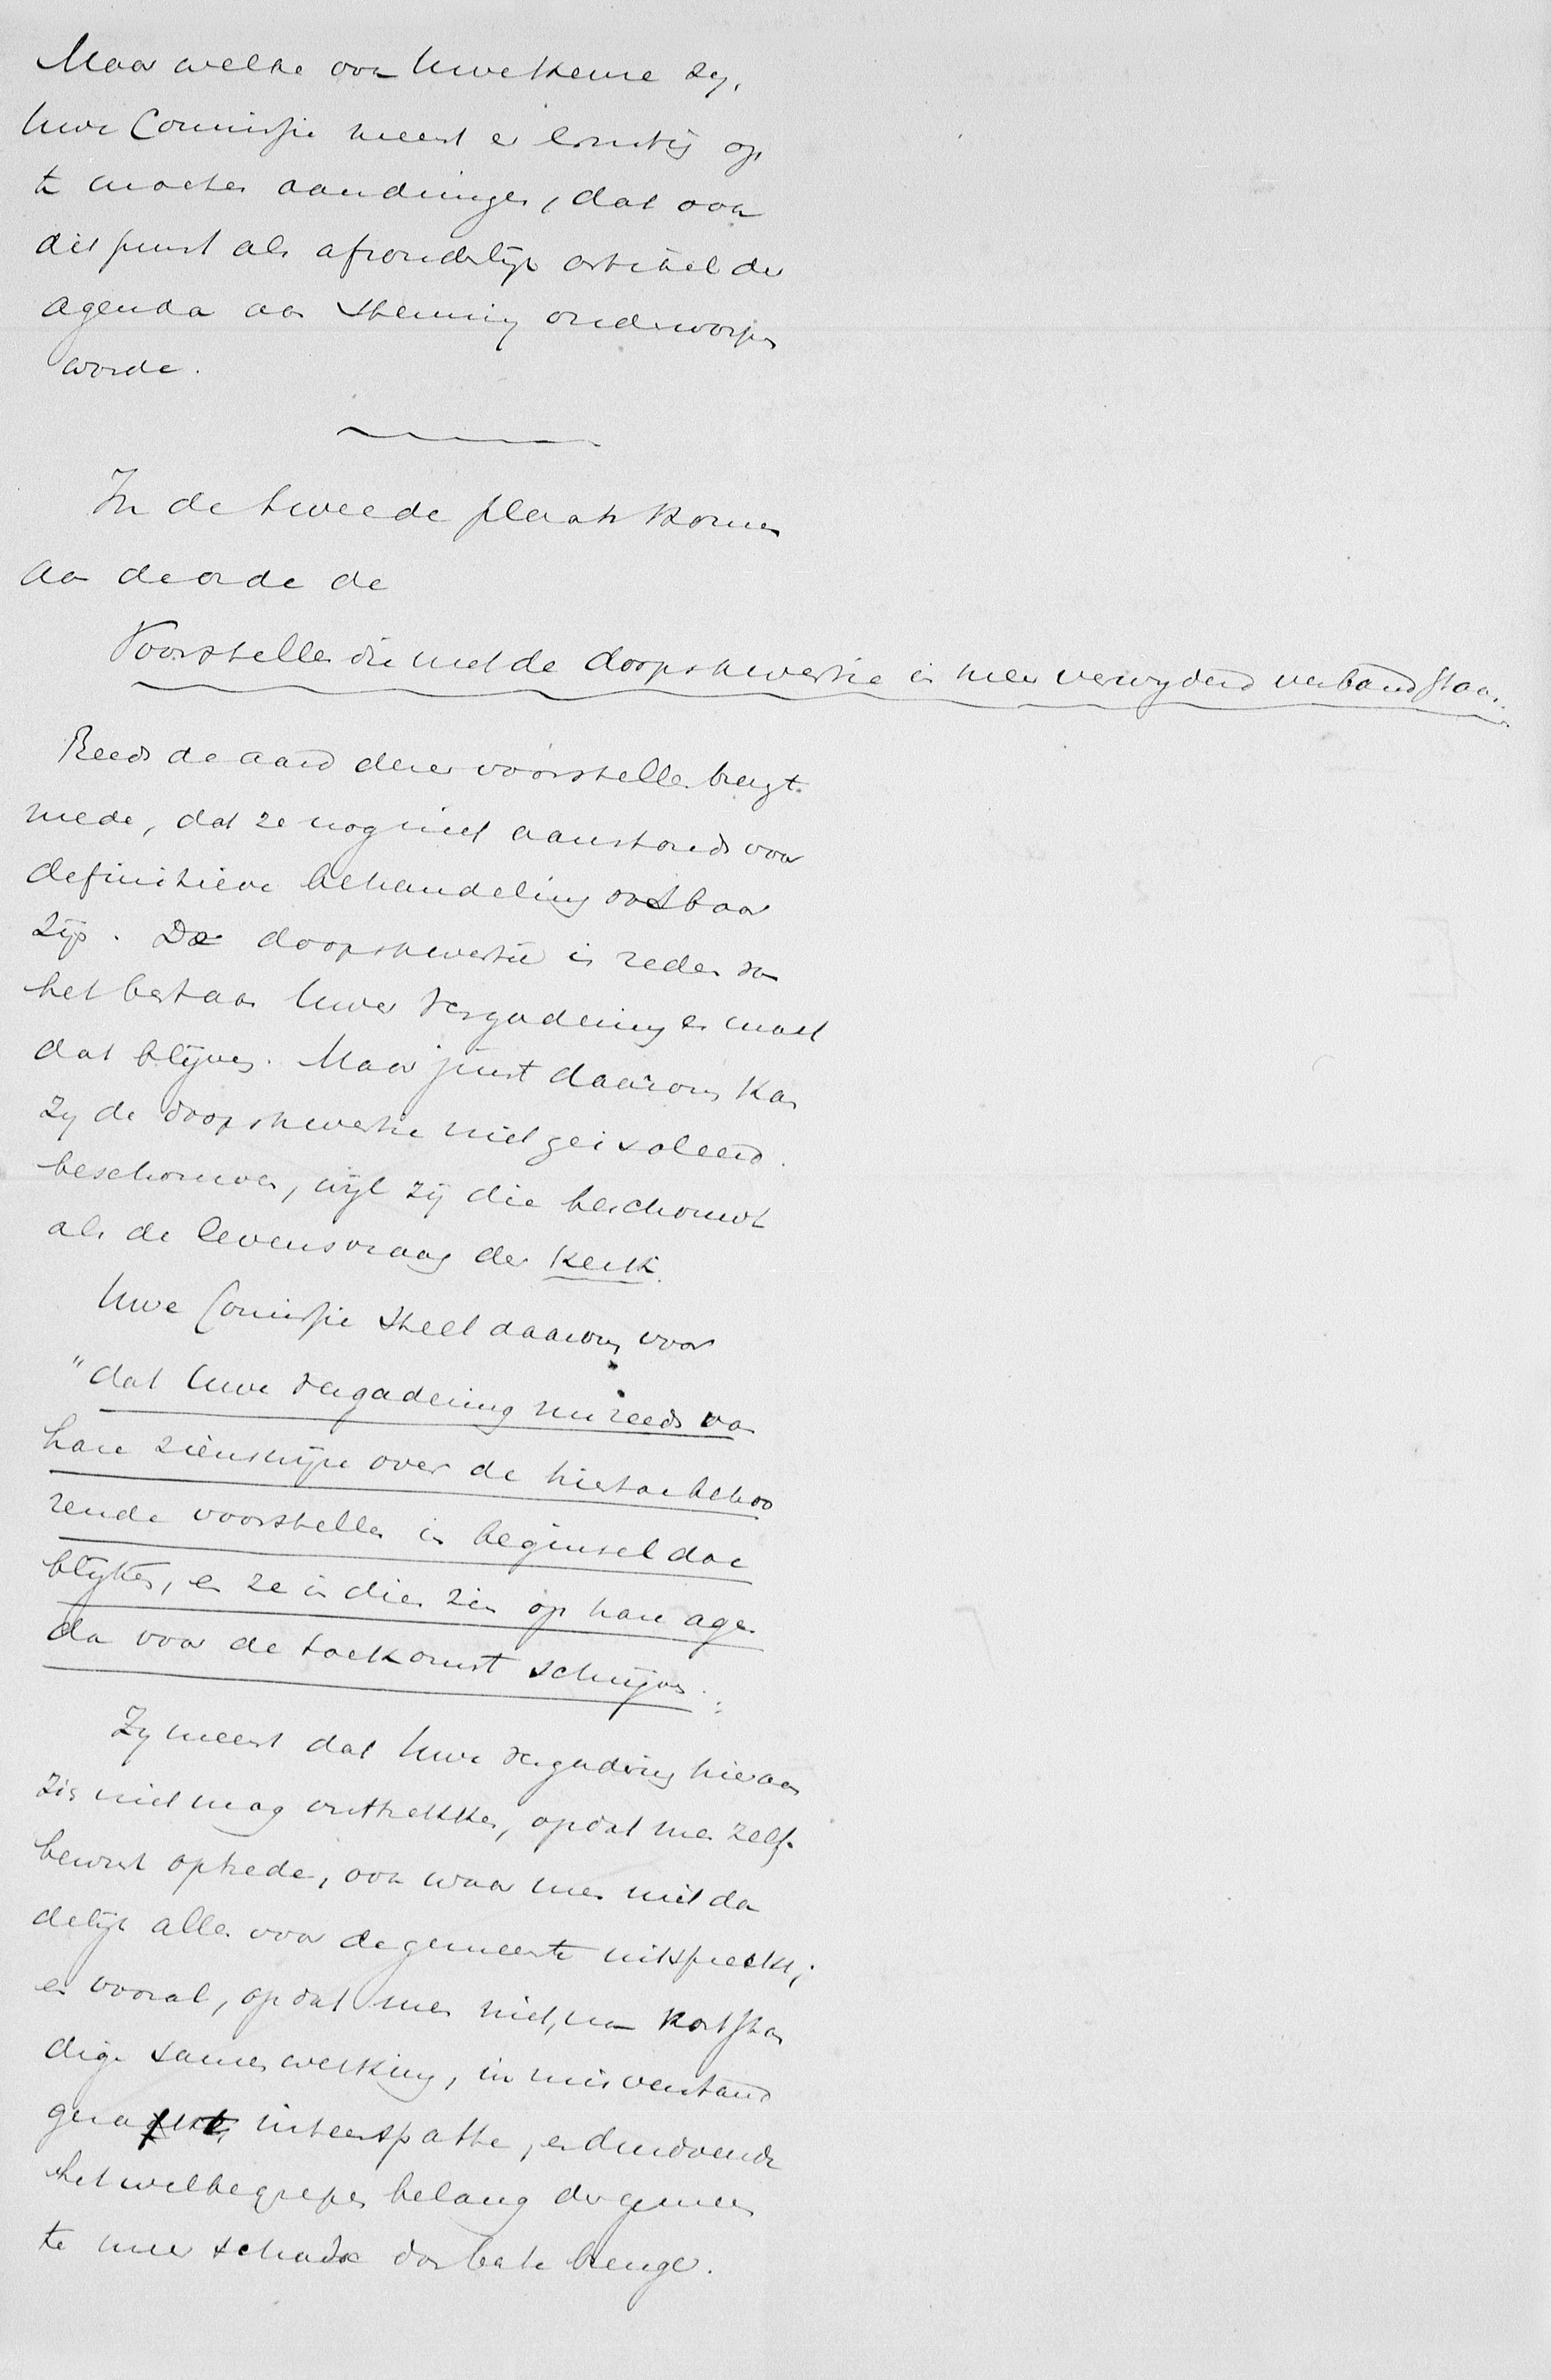 Maar welke ook Uwe keuze zy,
Uwe Commissie meent er ernstig op
te moeten aandringen, dat ook
dit punt als afzonderlijk artikel der
agenda aan stemming onderworpen
worde.
In de tweede plaats komen
aan de orde de
Voorstellen die met de doopskwestie in meer verwyderd verband staan.
Reeds de aard dezer voorstellen brengt
mede, dat ze nog niet aanstonds voor
definitieve behandeling vatbaar
zijn. De doopskwestie is reden van
het bestaan Uwer Vergadering en moet
dat blijven. Maar juist daarom kan
zy de doopskwestie niet geisoleerd
beschouwen, wijl zij die beschouwt
als de levensvraag der kerk.
Uwe Comissie stelt daarom voor
"dat Uwe Vergadering nu reeds van
hare zienswijze over de hiertoe behoo
rende voorstellen in beginsel doe
blijken, en ze in dien zin op hare agen
da voor de toekomst schrijve."
Zy meent dat Uwe Vergadring hieraan
zich niet mag onttrekken, opdat men zelf-
bewust optrede, ook waar men niet da
delijk alles voor de gemeente uitspreekt;
en vooral, opdat men niet, na kortston
dige samenwerking, in misverstand
gerake, uiteenspatte, en
het welbegrepen belang der gemeen
te meer schade dan bate brenge.